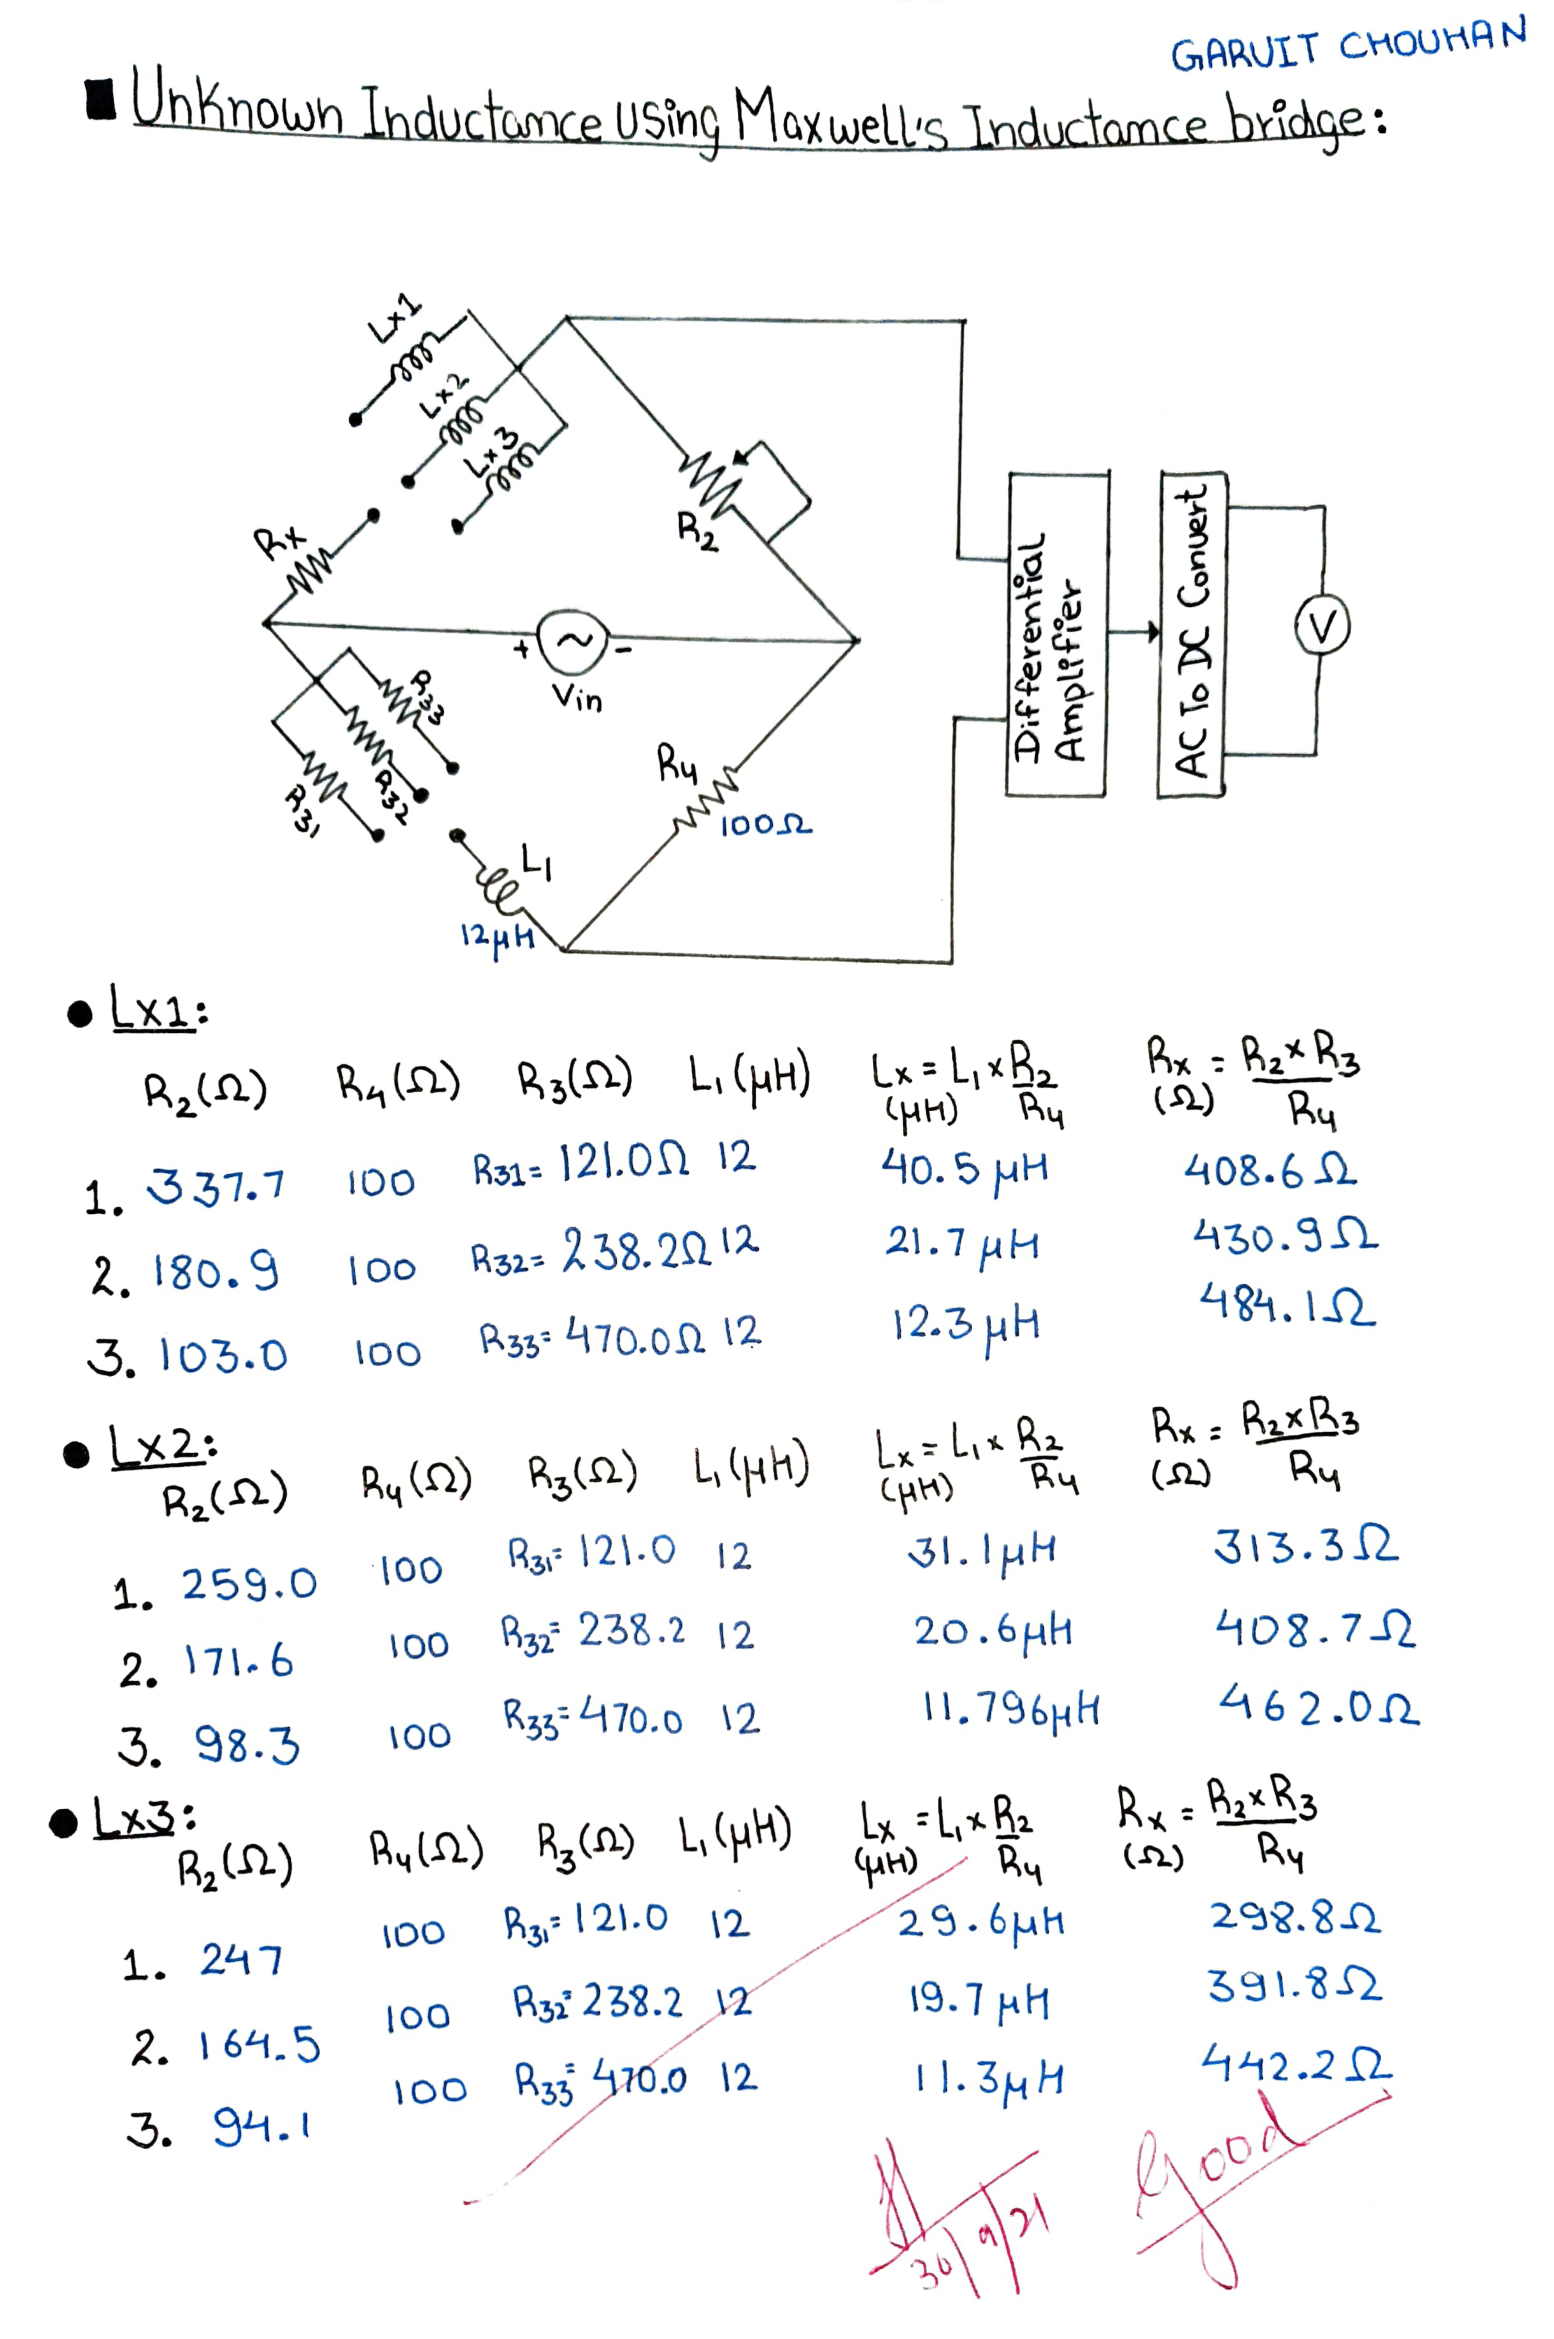 GARVIT CHOUHAN
■ Unknown Inductance using Maxwell's Inductance bridge:
Lx1
Lx2
Lx3
Rx
R2
+ ~ -
Vin
R33
R32
R31
R4
100Ω
L1
12μH
Differential
Amplifier
AC To DC Convert
V
● Lx1:
R2(Ω) R4(Ω) R3(Ω) L1(μH) Lx = L1 x R2/R4 (μH) Rx = R2 x R3/R4 (Ω)
1. 337.7 100 R31= 121.0Ω 12 40.5 μH 408.6Ω
2. 180.9 100 R32= 238.2Ω 12 21.7 μH 430.9Ω
3. 103.0 100 R33= 470.0Ω 12 12.3 μH 484.1Ω
● Lx2:
R2(Ω) R4(Ω) R3(Ω) L1(μH) Lx = L1 x R2/R4 (μH) Rx = R2xR3/R4 (Ω)
1. 259.0 100 R31= 121.0 12 31.1μH 313.3Ω
2. 171.6 100 R32= 238.2 12 20.6μH 408.7Ω
3. 98.3 100 R33= 470.0 12 11.796μH 462.0Ω
● Lx3:
R2(Ω) R4(Ω) R3(Ω) L1(μH) Lx = L1 x R2/R4 (μH) Rx = R2xR3/R4 (Ω)
1. 247 100 R31= 121.0 12 29.6μH 298.8Ω
2. 164.5 100 R32= 238.2 12 19.7μH 391.8Ω
3. 94.1 100 R33= 470.0 12 11.3μH 442.2Ω
Good
30/9/21